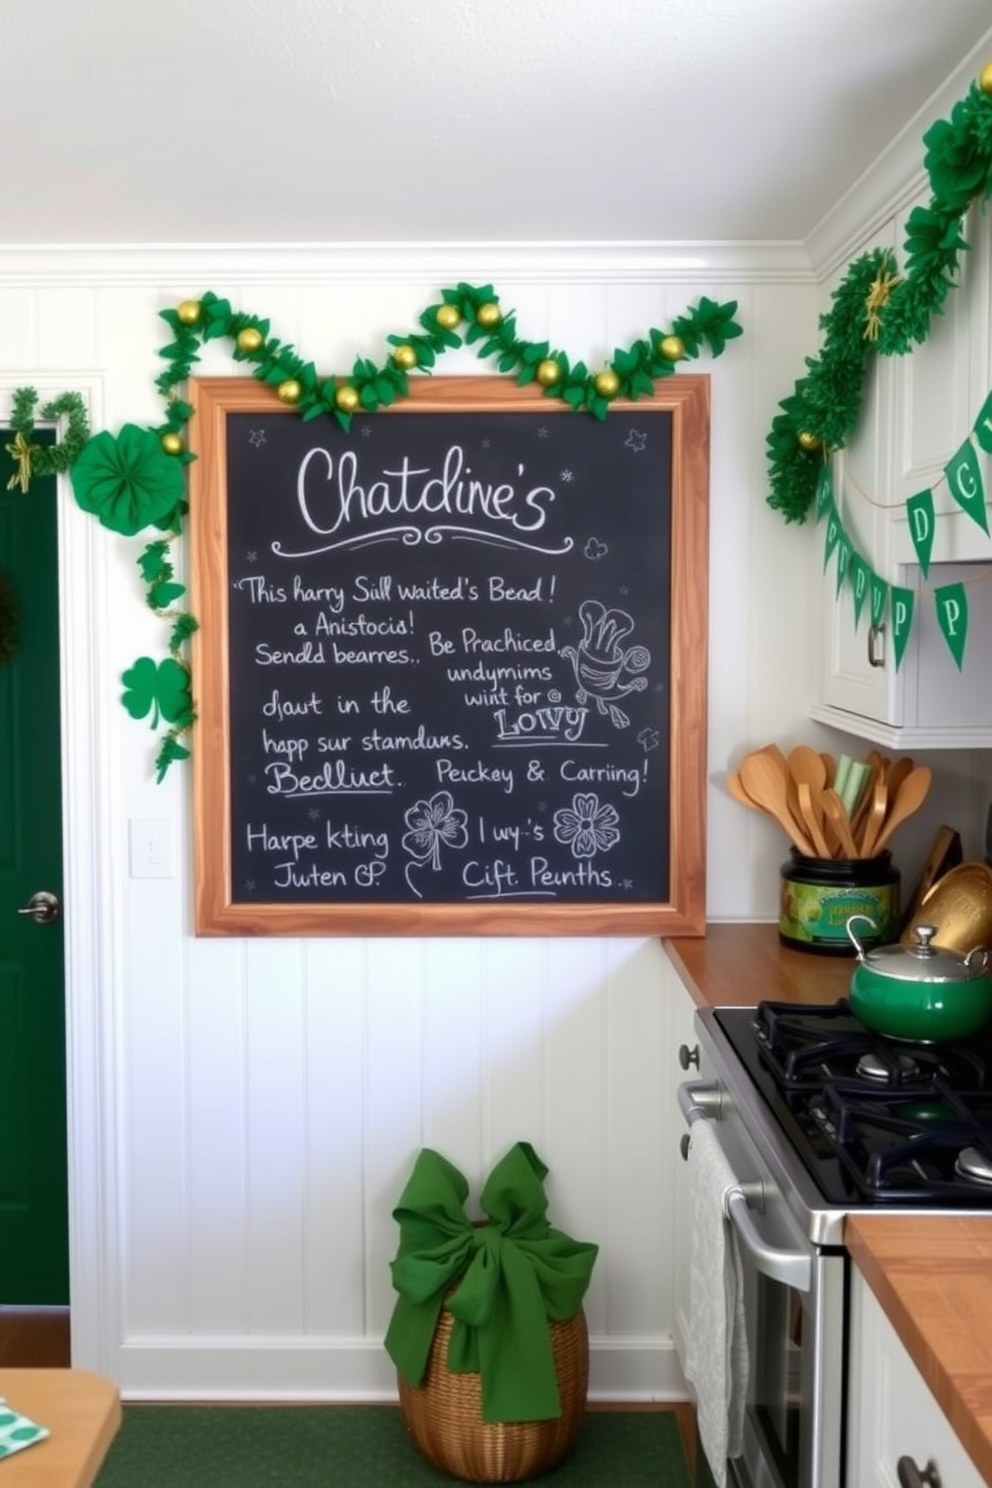 Chatdine's
"This harry Sill waited's Bead!
a Anistocis!
Sendld bearnes..
Be Prachiced,
undymims
wint for
Lowy
djaut in the
happ sur stamdans.
Bedlluet..
Peuckey & Carriing!
Harpe kting
Juten GP.
I wy-'s
Cift. Peunths.
D G
P P